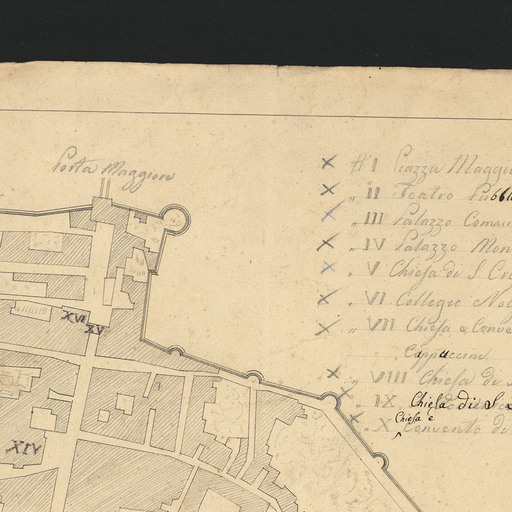 Porta Maggiore
# I Piazza Maggi
„ II Teatro Pubbl
„ III Palazzo Comun
„ IV Palazzo Mon
„ V Chiesa di S. Cr
„ VI Collegio No
„ VII Chiesa e Conve
Cappuccini
„ VIII Chiesa di S
„ IX Chiesa di S
Chiesa e
„ X Convento di
XVI
XV
XIV